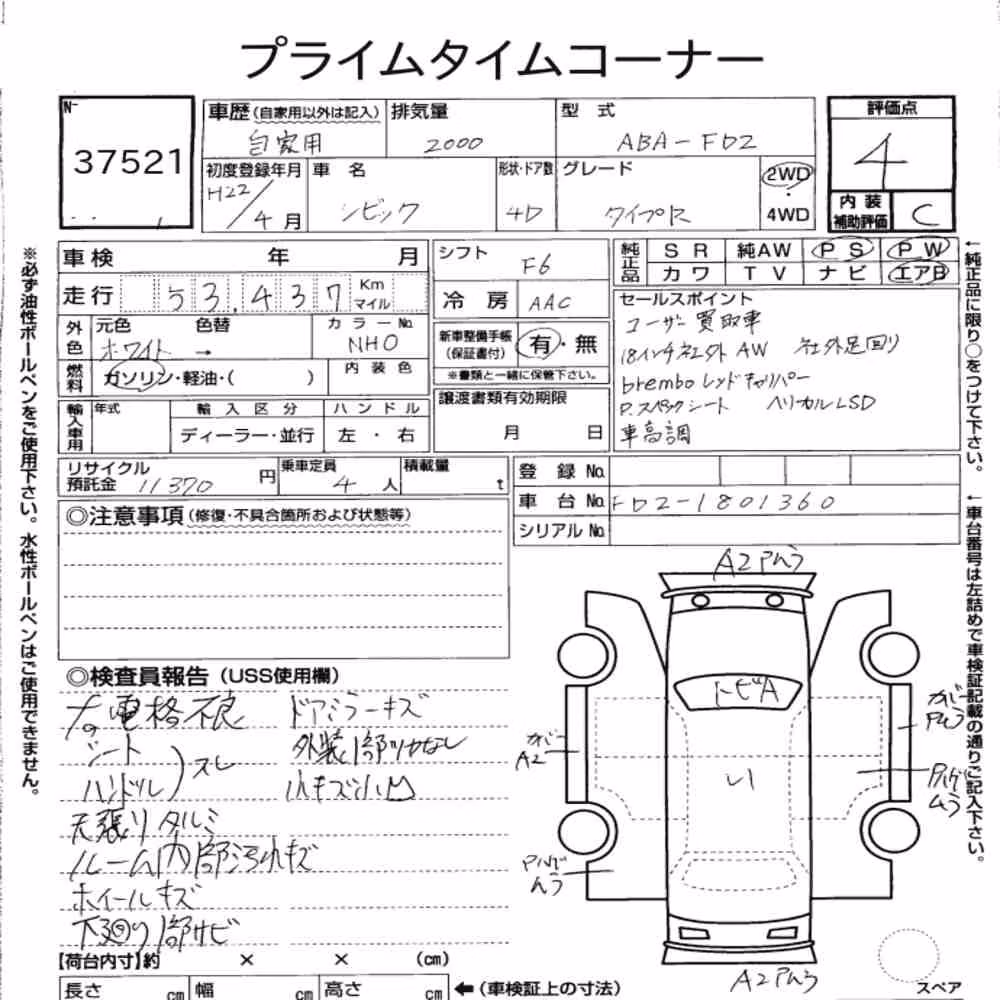 プライムタイムコーナー
N-
37521
車歴(自家用以外は記入)
自家用
排気量
2000
型 式
ABA-FD2
評価点
4
内装補助評価
C
初度登録年月
H22/4月
車 名
シビック
形状・ドア数
4D
グレード
タイプR
2WD
・
4WD
車検 年 月
走行 53,437 Km マイル
外色
元色 色替
ホワイト →
カラーNo.
NH0
燃料
ガソリン・軽油・( )
内装色
輸入車用
年式
輸入区分
ディーラー・並行
ハンドル
左・右
リサイクル預託金 11370 円
乗車定員 4 人
積載量 t
シフト F6
冷房 AAC
新車整備手帳(保証書付) 有・無
※書類と一緒に保管下さい。
譲渡書類有効期限
月 日
純正品
SR 純AW PS PW
カワ TV ナビ エアB
セールスポイント
ユーザー買取車
18インチ社外AW 社外足回り
bremboレッドキャリパー
R.スペックシート ヘリカルLSD
車高調
登録No.
車台No. FD2-1801360
シリアルNo.
◎注意事項(修復・不具合箇所および状態等)
◎検査員報告(USS使用欄)
電格不良 ドアミラーキズ
シート
ハンドル)スレ
外装1部ツヤなし
小キズ小凹
天張りタルミ
ルーム内部汚れキズ
ホイールキズ
下廻り1部サビ
【荷台内寸】約 × × (cm)
長さ cm 幅 cm 高さ cm ←(車検証上の寸法)
A2 アんう
トビA
カバーA2
カバーアんう
A2アんう
スペア
※必ず油性ボールペンをご使用下さい。水性ボールペンはご使用できません。
←純正品に限り○をつけて下さい。
←車台番号は左詰めで車検証記載の通りご記入下さい。